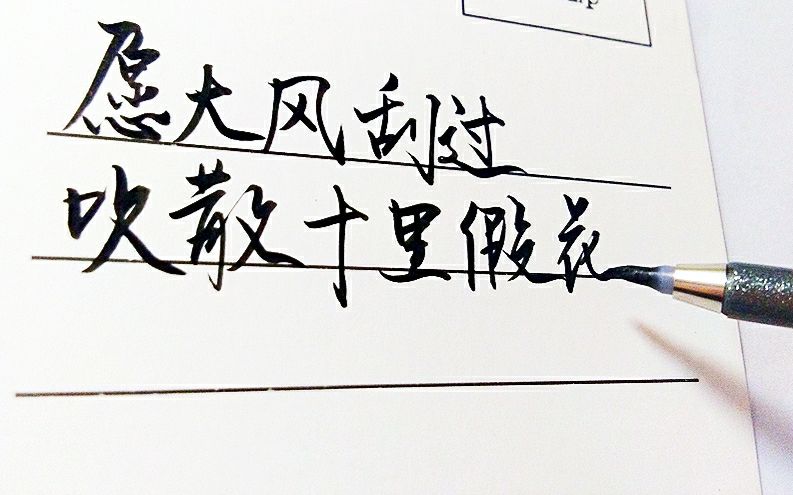 愿大风刮过
吹散十里假花